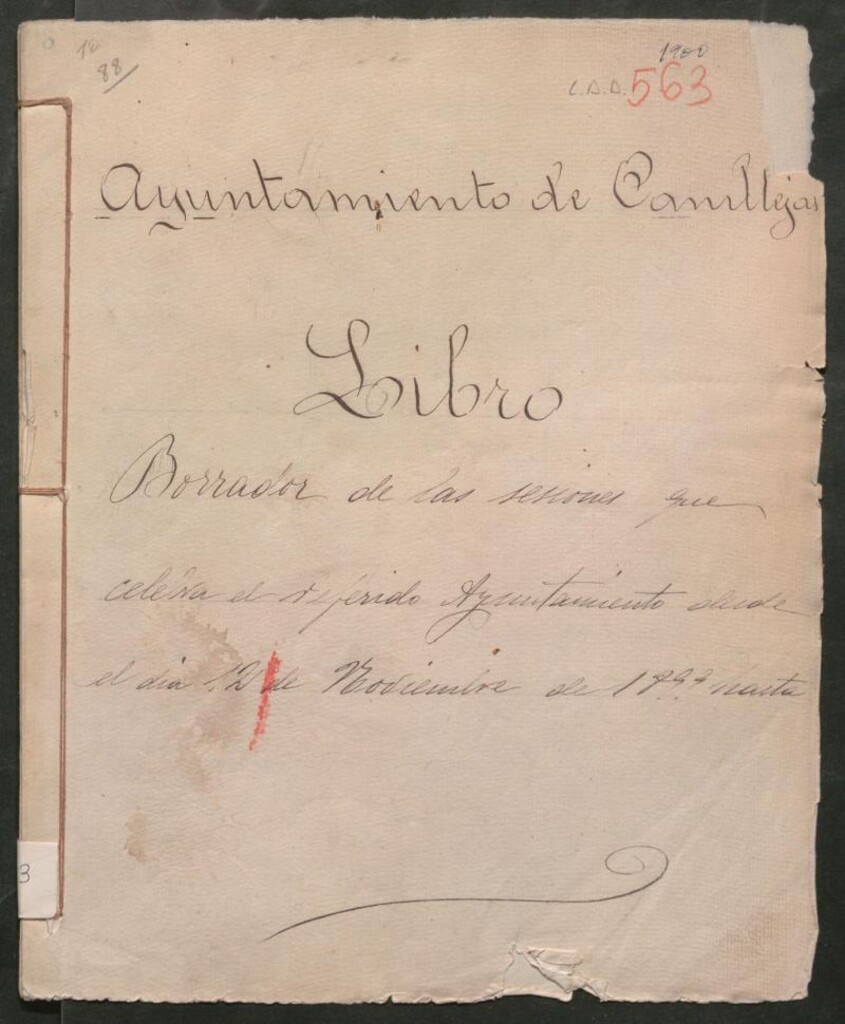 88
1900
L.A.A. 563
Ayuntamiento de Canillejas
Libro
Borrador de las sesiones que
celebra el referido Ayuntamiento desde
el dia 12 de Noviembre de 1899 hasta
3